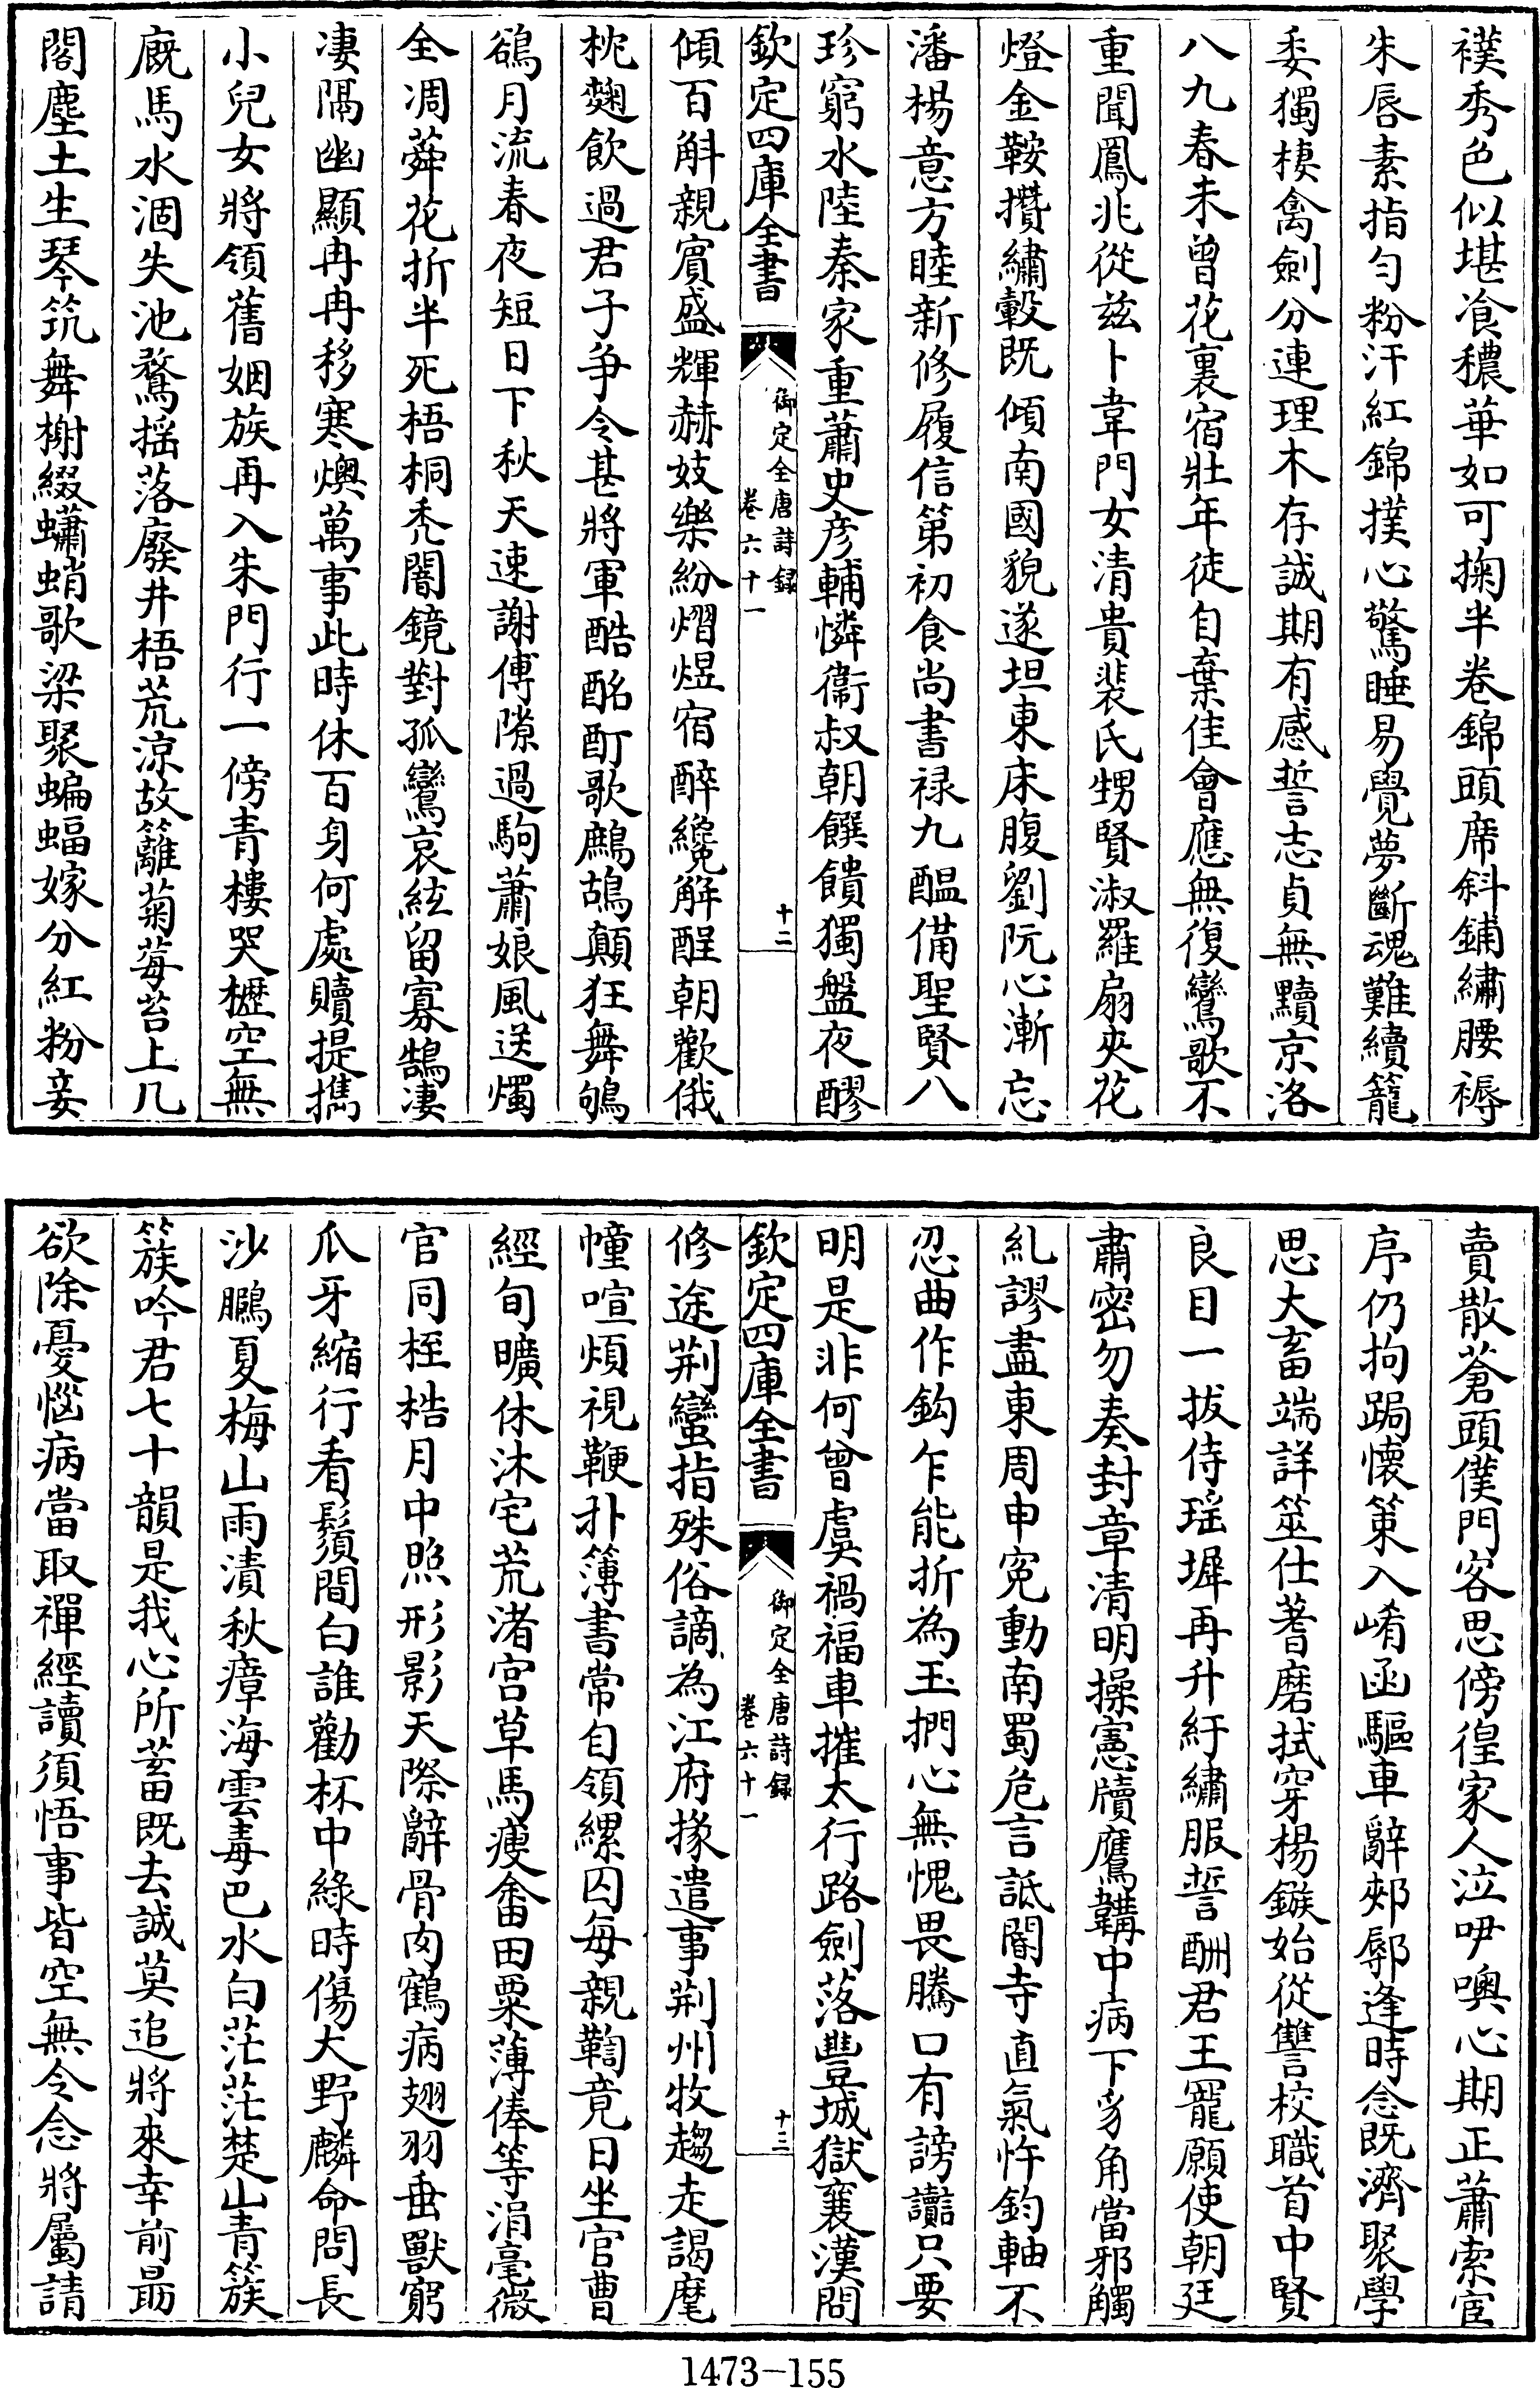 襆秀色似堪飡穠華如可掬半卷錦頭席斜鋪繡腰褥
朱唇素指勻粉汗紅錦撲心驚睡易覺夢斷魂難續籠
委獨棲禽劍分連理木存誠期有感誓志貞無黷京洛
八九春未曾花裏宿壯年徒自棄佳會應無復鸞歌不
重聞鳳兆從兹卜韋門女清貴裴氏甥賢淑羅扇夾花
燈金鞍攢繡轂既傾南國貌遂坦東床腹劉阮心漸忘
潘楊意方睦新修履信第初食尚書禄九醖備聖賢八
珍窮水陸秦家重蕭史彦輔憐衞叔朝饌饋獨盤夜醪
欽定四庫全書
御定全唐詩録
卷六十一
十二
傾百斛親賓盛輝赫妓樂紛熠煜宿醉纔解酲朝歡俄
枕麴飲過君子争令甚將軍酷酩酊歌鷓鴣顛狂舞鴝
鵒月流春夜短日下秋天速謝傅隙過駒蕭娘風送燭
全凋蕣花折半死梧桐禿闇鏡對孤鸞哀絃留寡鵠凄
凄隔幽顯冉冉移寒燠萬事此時休百身何處贖提攜
小兒女將領舊姻族再入朱門行一傍青樓哭櫪空無
廐馬水涸失池鶩摇落廢井梧荒涼故籬菊莓苔上几
閣塵土生琴筑舞榭綴蠨蛸歌梁聚蝙蝠嫁分紅粉妾
賣散蒼頭僕門客思傍徨家人泣咿噢心期正蕭索宦
序仍拘跼懷策入崤函驅車辭郟鄏逢時念既濟聚學
思大畜端詳筮仕蓍磨拭穿楊鏃始從讐校職首中賢
良目一拔侍瑶墀再升紆繡服誓酬君王寵願使朝廷
肅密勿奏封章清明操憲牘鷹韝中病下豸角當邪觸
糺謬盡東周申寃動南蜀危言詆閽寺直氣忤鈞軸不
忍曲作鈎乍能折為玉捫心無愧畏騰口有謗讟只要
明是非何曾虞禍福車摧太行路劍落豐城獄襄漢問
欽定四庫全書
御定全唐詩録
卷六十一
十三
修途荆蠻指殊俗謫為江府掾遣事荆州牧趨走謁麾
幢喧煩視鞭扑簿書常自領縲囚每親鞫竟日坐官曹
經旬曠休沐宅荒渚宫草馬瘦畬田粟薄俸等涓毫微
官同桎梏月中照形影天際辭骨肉鶴病翅羽垂獸窮
爪牙縮行看鬚間白誰勸杯中綠時傷大野麟命問長
沙鵩夏梅山雨漬秋瘴海雲毒巴水白茫茫楚山青簇
簇吟君七十韻是我心所蓄既去誠莫追將來幸前朂
欲除憂惱病當取禪經讀須悟事皆空無令念將屬請
1473-155